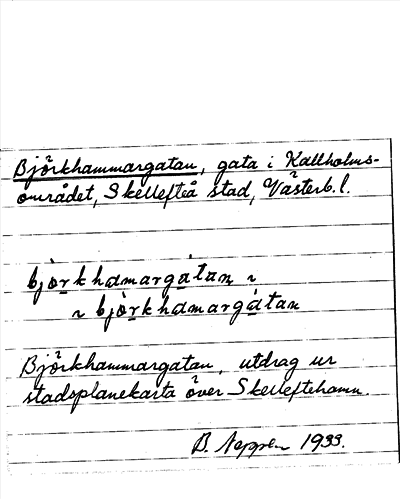 Björkhammargatan, gata i Kallholms-
området, Skellefteå stad, Västerb. l.
bjò̀rkhamargàtan i
~ bjò̀rkhamargàtan
Björkhammargatan, utdrag ur
stadsplanekarta över Skelleftehamn.
B. 1933.